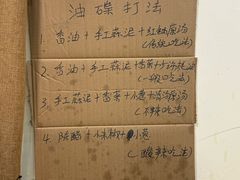 油碟打法
1. 香油+手工蒜泥+红锅原汤
(传统吃法)
2. 香油+手工蒜泥+香菜+小葱+蚝油
(一般吃法)
3. 手工蒜泥+香菜+小葱+清汤原汤
(不辣吃法)
4. 陈醋+小米椒+小葱
(酸辣吃法)